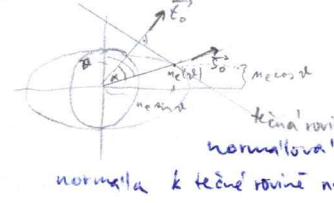 t₀
s₀
n_e(ϑ)
n_e cos ϑ
n_e sin ϑ
tečná rovi
normálová
normála k tečné rovině n